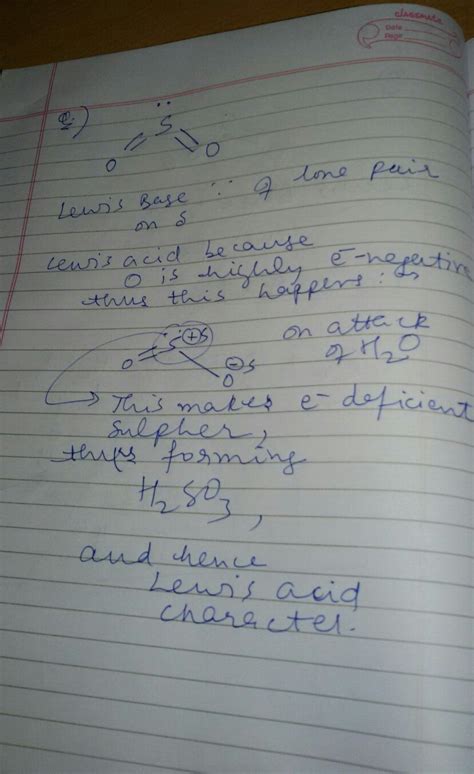 classmate
Date
Page
Q.)
S
O O
Lewis Base ∵ of lone pair
on S
Lewis acid because
O is highly e⁻-negative
thus this happens :→
S ⊕S
O O ⊖S
on attack
of H₂O
This makes e⁻ deficient
Sulpher,
thus forming
H₂SO₃,
and hence
Lewis acid
character.